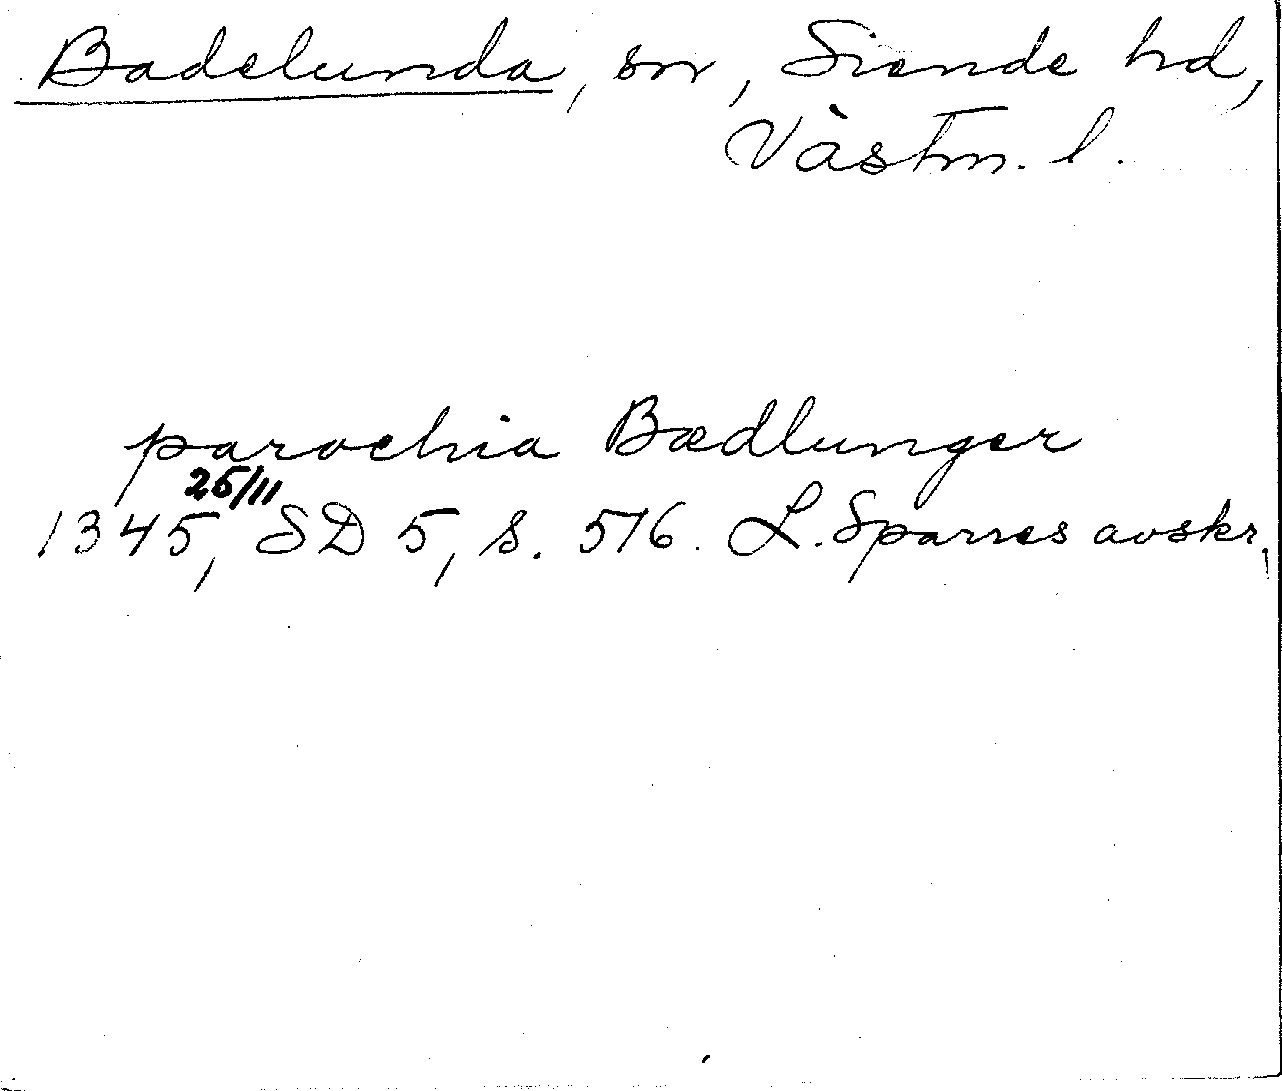 Badelunda, sn, Siende hd,
Västm. l.
parochia Bædlunger
25/11
1345, SD 5, s. 516. L. Sparres avskr.